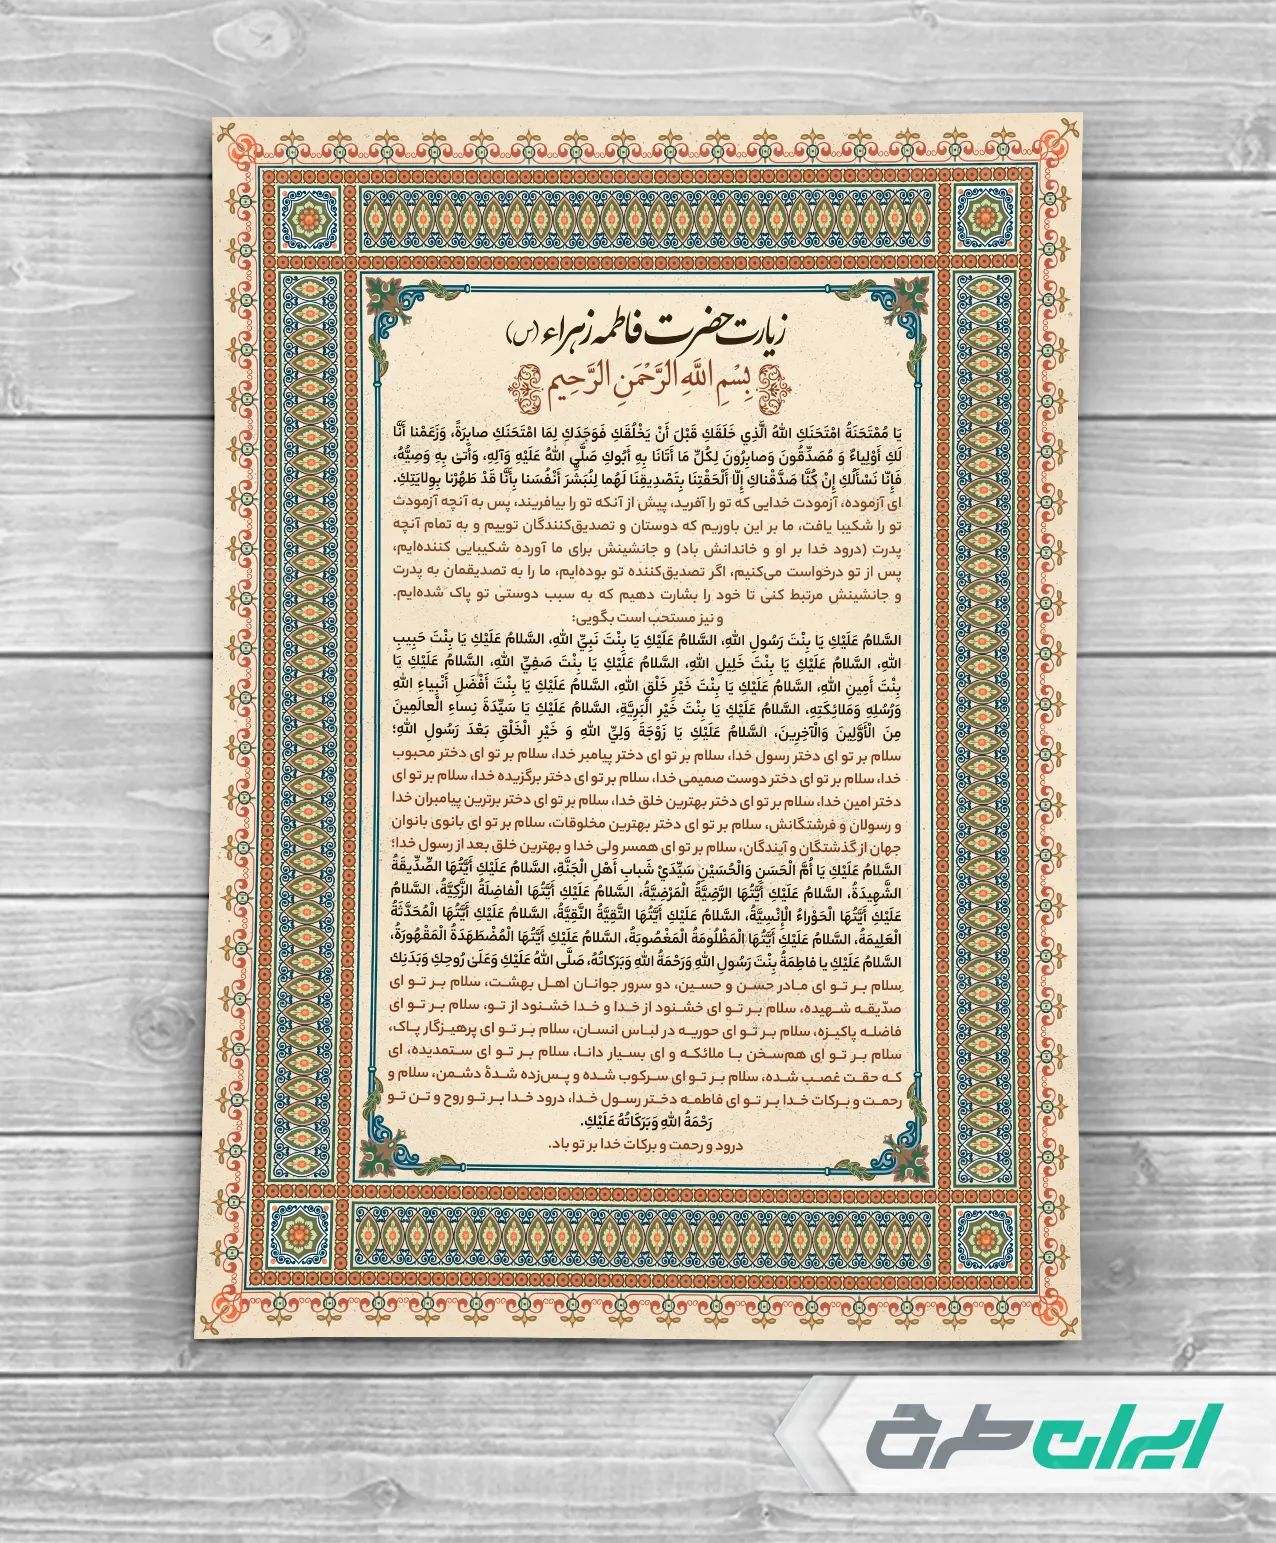 زیارت حضرت فاطمه زهراء (س)
بِسْمِ اللَّهِ الرَّحْمَنِ الرَّحِيمِ
يَا مُمْتَحَنَةُ امْتَحَنَكِ اللهُ الَّذِي خَلَقَكِ قَبْلَ أَنْ يَخْلُقَكِ فَوَجَدَكِ لِمَا امْتَحَنَكِ صابِرَةً، وَزَعَمْنا أَنَّا
لَكِ أَوْلِياءٌ وَ مُصَدِّقُونَ وَصابِرُونَ لِكُلِّ مَا أَتَانَا بِهِ أَبُوكِ صَلَّى اللهُ عَلَيْهِ وَآلِهِ، وَأَتىٰ بِهِ وَصِيُّهُ،
فَإِنّا نَسْأَلُكِ إِنْ كُنَّا صَدَّقْناكِ إِلّا أَلْحَقْتِنا بِتَصْدِيقِنَا لَهُما لِنُبَشِّرَ أَنْفُسَنا بِأَنَّا قَدْ طَهُرْنا بِوِلايَتِكِ.
ای آزموده، آزمودت خدایی که تو را آفرید، پیش از آنکه تو را بیافریند، پس به آنچه آزمودت
تو را شکیبا یافت، ما بر این باوریم که دوستان و تصدیق‌کنندگان توییم و به تمام آنچه
پدرت (درود خدا بر او و خاندانش باد) و جانشینش برای ما آورده شکیبایی کننده‌ایم،
پس از تو درخواست می‌کنیم، اگر تصدیق‌کننده تو بوده‌ایم، ما را به تصدیقمان به پدرت
و جانشینش مرتبط کنی تا خود را بشارت دهیم که به سبب دوستی تو پاک شده‌ایم.
و نیز مستحب است بگویی:
السَّلامُ عَلَيْكِ يَا بِنْتَ رَسُولِ اللهِ، السَّلامُ عَلَيْكِ يَا بِنْتَ نَبِيِّ اللهِ، السَّلامُ عَلَيْكِ يَا بِنْتَ حَبِيبِ
اللهِ، السَّلامُ عَلَيْكِ يَا بِنْتَ خَلِيلِ اللهِ، السَّلامُ عَلَيْكِ يَا بِنْتَ صَفِيِّ اللهِ، السَّلامُ عَلَيْكِ يَا
بِنْتَ أَمِينِ اللهِ، السَّلامُ عَلَيْكِ يَا بِنْتَ خَيْرِ خَلْقِ اللهِ، السَّلامُ عَلَيْكِ يَا بِنْتَ أَفْضَلِ أَنْبِياءِ اللهِ
وَرُسُلِهِ وَمَلائِكَتِهِ، السَّلامُ عَلَيْكِ يَا بِنْتَ خَيْرِ الْبَرِيَّةِ، السَّلامُ عَلَيْكِ يَا سَيِّدَةَ نِساءِ الْعالَمِينَ
مِنَ الْأَوَّلِينَ وَالْآخِرِينَ، السَّلامُ عَلَيْكِ يَا زَوْجَةَ وَلِيِّ اللهِ وَ خَيْرِ الْخَلْقِ بَعْدَ رَسُولِ اللهِ؛
سلام بر تو ای دختر رسول خدا، سلام بر تو ای دختر پیامبر خدا، سلام بر تو ای دختر محبوب
خدا، سلام بر تو ای دختر دوست صمیمی خدا، سلام بر تو ای دختر برگزیده خدا، سلام بر تو ای
دختر امین خدا، سلام بر تو ای دختر بهترین خلق خدا، سلام بر تو ای دختر برترین پیامبران خدا
و رسولان و فرشتگانش، سلام بر تو ای دختر بهترین مخلوقات، سلام بر تو ای بانوی بانوان
جهان از گذشتگان و آیندگان، سلام بر تو ای همسر ولی خدا و بهترین خلق بعد از رسول خدا؛
السَّلامُ عَلَيْكِ يَا أُمَّ الْحَسَنِ وَالْحُسَيْنِ سَيِّدَيْ شَبابِ أَهْلِ الْجَنَّةِ، السَّلامُ عَلَيْكِ أَيَّتُهَا الصِّدِّيقَةُ
الشَّهِيدَةُ، السَّلامُ عَلَيْكِ أَيَّتُهَا الرَّضِيَّةُ الْمَرْضِيَّةُ، السَّلامُ عَلَيْكِ أَيَّتُهَا الْفاضِلَةُ الزَّكِيَّةُ، السَّلامُ
عَلَيْكِ أَيَّتُهَا الْحَوْراءُ الْإِنْسِيَّةُ، السَّلامُ عَلَيْكِ أَيَّتُهَا التَّقِيَّةُ النَّقِيَّةُ، السَّلامُ عَلَيْكِ أَيَّتُهَا الْمُحَدَّثَةُ
الْعَلِيمَةُ، السَّلامُ عَلَيْكِ أَيَّتُهَا الْمَظْلُومَةُ الْمَغْصُوبَةُ، السَّلامُ عَلَيْكِ أَيَّتُهَا الْمُضْطَهَدَةُ الْمَقْهُورَةُ،
السَّلامُ عَلَيْكِ يا فاطِمَةُ بِنْتَ رَسُولِ اللهِ وَرَحْمَةُ اللهِ وَبَرَكاتُهُ، صَلَّى اللهُ عَلَيْكِ وَعَلَىٰ رُوحِكِ وَبَدَنِكِ
سلام بر تو ای مادر حسن و حسین، دو سرور جوانان اهل بهشت، سلام بر تو ای
صدّیقه شهیده، سلام بر تو ای خشنود از خدا و خدا خشنود از تو، سلام بر تو ای
فاضله پاکیزه، سلام بر تو ای حوریه در لباس انسان، سلام بر تو ای پرهیزگار پاک،
سلام بر تو ای هم‌سخن با ملائکه و ای بسیار دانا، سلام بر تو ای ستمدیده، ای
که حقت غصب شده، سلام بر تو ای سرکوب شده و پس‌زده شدهٔ دشمن، سلام و
رحمت و برکات خدا بر تو ای فاطمه دختر رسول خدا، درود خدا بر تو و روح و تن تو
رَحْمَةُ اللهِ وَبَرَكَاتُهُ عَلَيْكِ.
درود و رحمت و برکات خدا بر تو باد.
ایران طرح